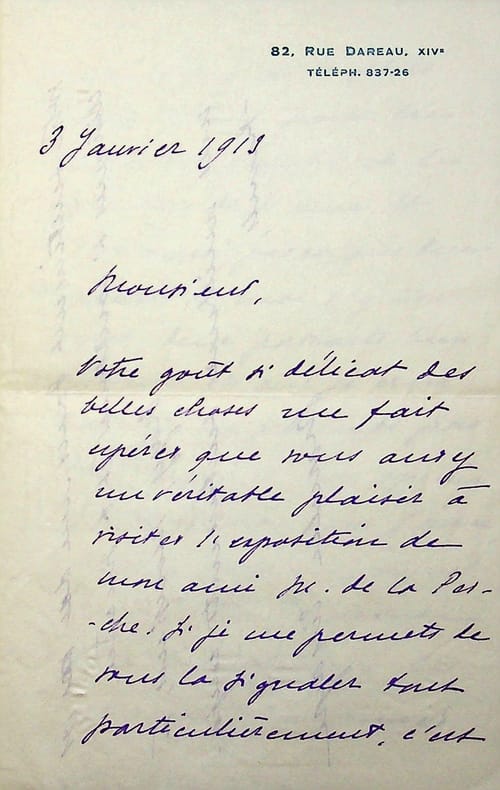 82, RUE DAREAU, XIVᵉ
TÉLÉPH. 837-26
3 Janvier 1913
Monsieur,
Votre goût si délicat des
belles choses me fait
espérer que vous aurez
un véritable plaisir à
visiter l'exposition de
mon ami M. de la Per-
-che. Si je me permets de
vous la signaler tout
particulièrement, c'est